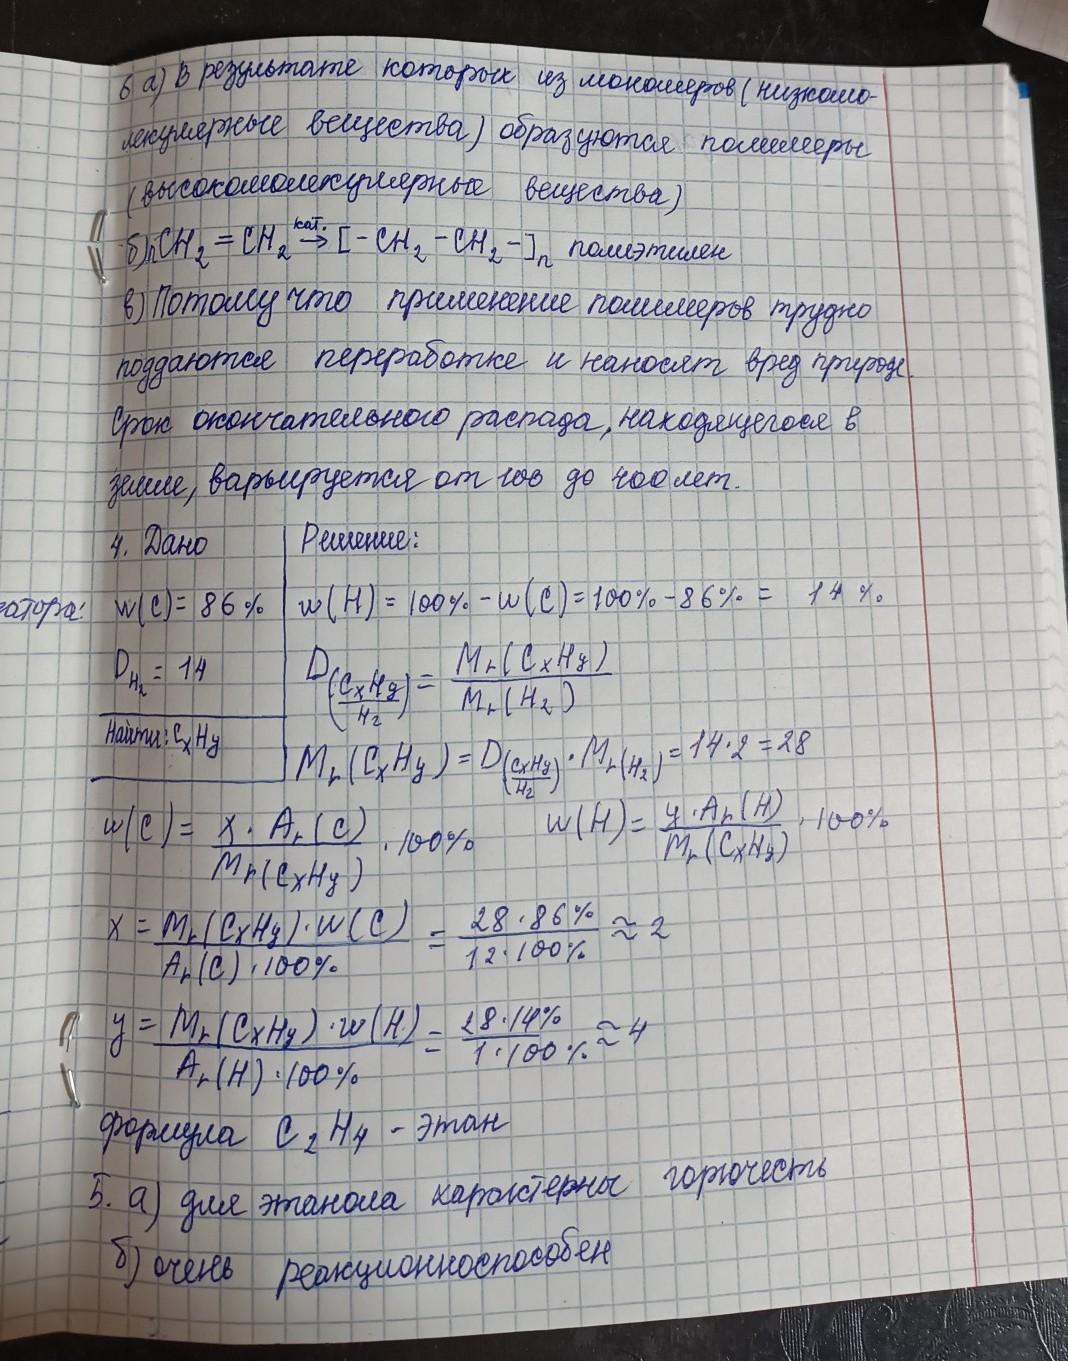 6 а) В результате которых из мономеров (низкомо-
лекулярные вещества) образуются полимеры
(высокомолекулярные вещества)
б) nCH₂ = CH₂ кат. → [- CH₂ - CH₂ -]ₙ полиэтилен
в) Потому что применение полимеров трудно
поддаются переработке и наносят вред природе.
Срок окончательного распада, находящегося в
земле, варьируется от 100 до 400 лет.
4. Дано Решение:
атора: w(C) = 86% w(H) = 100% - w(C) = 100% - 86% = 14%
D_H₂ = 14 D(CxHy/H₂) = Mr(CxHy)/Mr(H₂)
Найти: CxHy
Mr(CxHy) = D(CxHy/H₂) · Mr(H₂) = 14·2 = 28
w(C) = x·Ar(C)/Mr(CxHy) · 100% w(H) = y·Ar(H)/Mr(CxHy) · 100%
x = Mr(CxHy)·w(C)/Ar(C)·100% = 28·86%/12·100% ≈ 2
y = Mr(CxHy)·w(H)/Ar(H)·100% = 28·14%/1·100% ≈ 4
формула C₂H₄ - этан
5. а) для этанола характерны горючесть
б) очень реакционноспособен